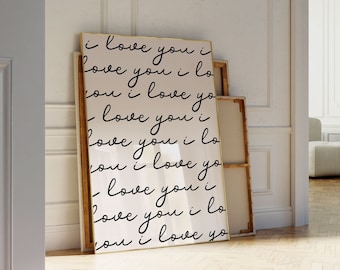 i love you i
love you i lo
you i love yo
love you i
love you i lo
you i love yo
i love you i
love you i lo
you i love yo